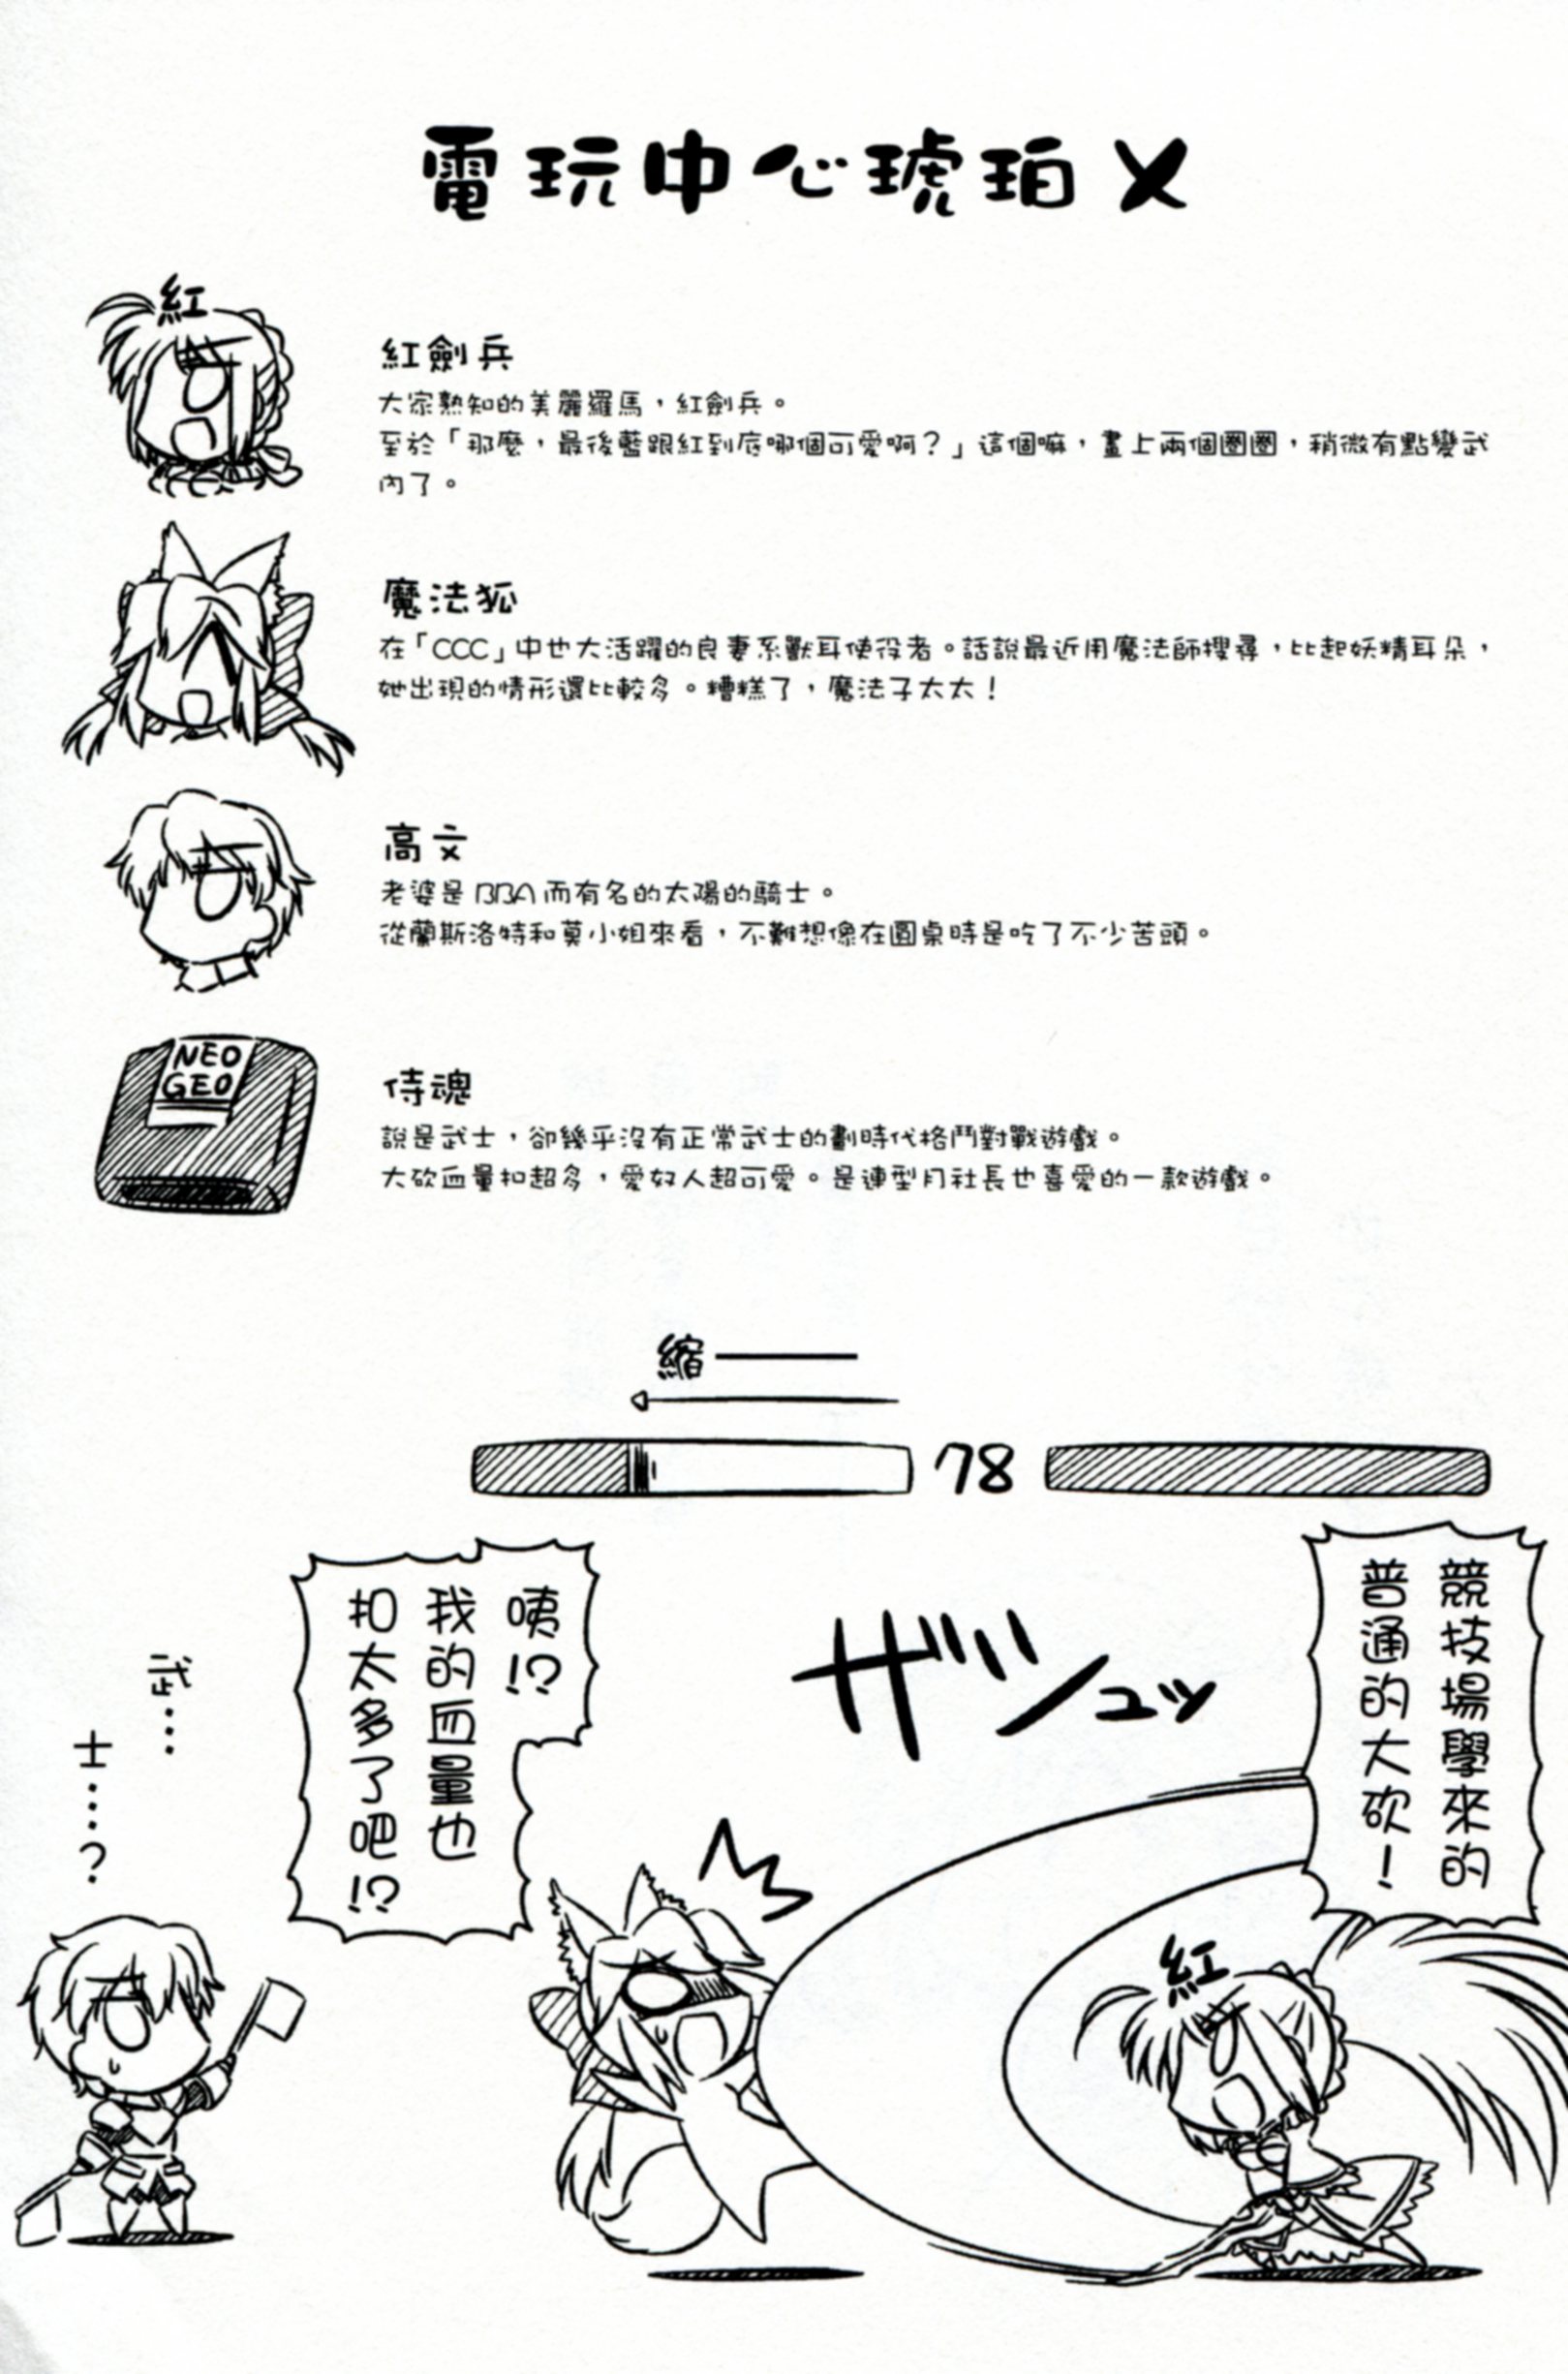 電玩中心琥珀X
紅
紅劍兵
大家熟知的美麗羅馬，紅劍兵。
至於「那麼，最後藍跟紅到底哪個可愛啊？」這個嘛，畫上兩個圈圈，稍微有點變武
內了。
魔法狐
在「CCC」中也大活躍的良妻系獸耳使役者。話說最近用魔法師搜尋，比起妖精耳朵，
她出現的情形還比較多。糟糕了，魔法子太太！
高文
老婆是BBA而有名的太陽的騎士。
從蘭斯洛特和莫小姐來看，不難想像在圓桌時是吃了不少苦頭。
NEO
GEO
侍魂
說是武士，卻幾乎沒有正常武士的劃時代格鬥對戰遊戲。
大砍血量扣超多，愛好人超可愛。是連型月社長也喜愛的一款遊戲。
縮——
78
競技場學來的
普通的大砍！
ザシュッ
咦!?
我的血量也
扣太多了吧!?
武…
士…？
紅